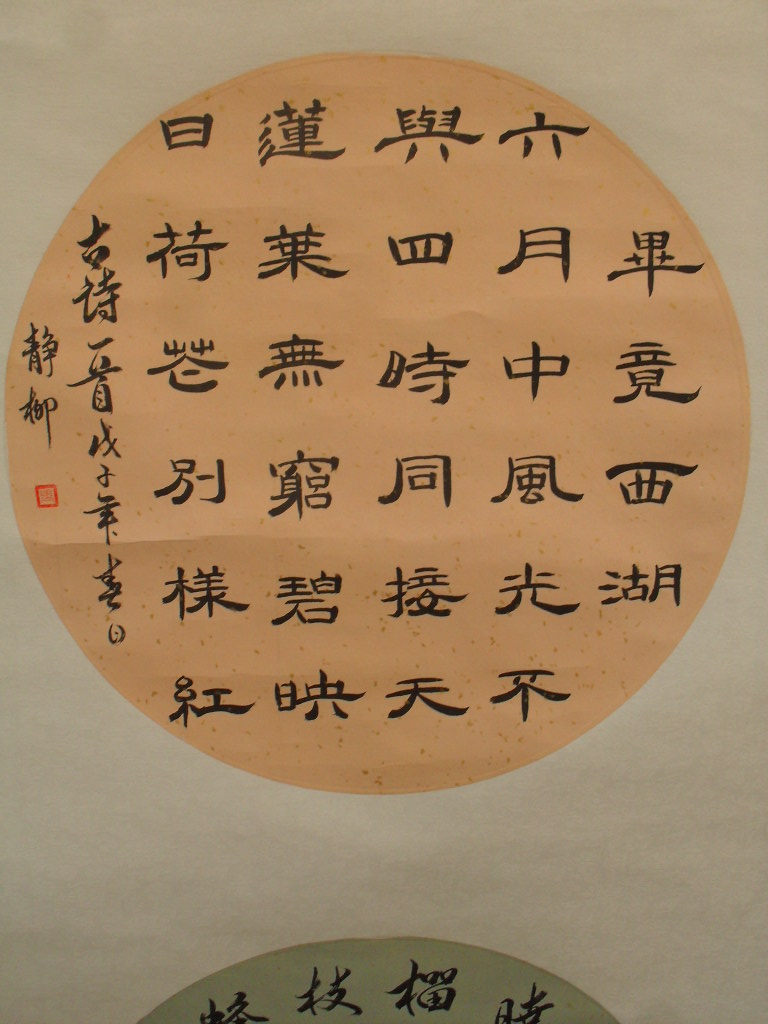 畢竟西湖
六月中風光不
與四時同接天
蓮葉無窮碧映
日荷花別樣紅
古诗一首戊子年春日
静柳
榴枝